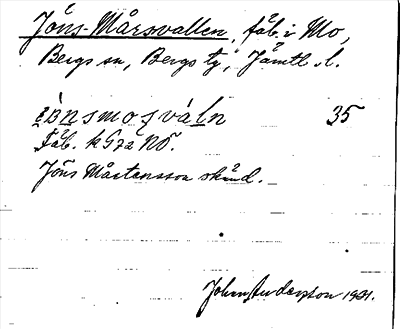 Jöns-Mårsvallen, fäb. i Mo,
Bergs sn, Bergs tg, Jämtl. l.
jönsmosváln 35
Fäb. k G72 NÖ.
Jöns Mårtensson skänd.
Johan Anderzon 1921.